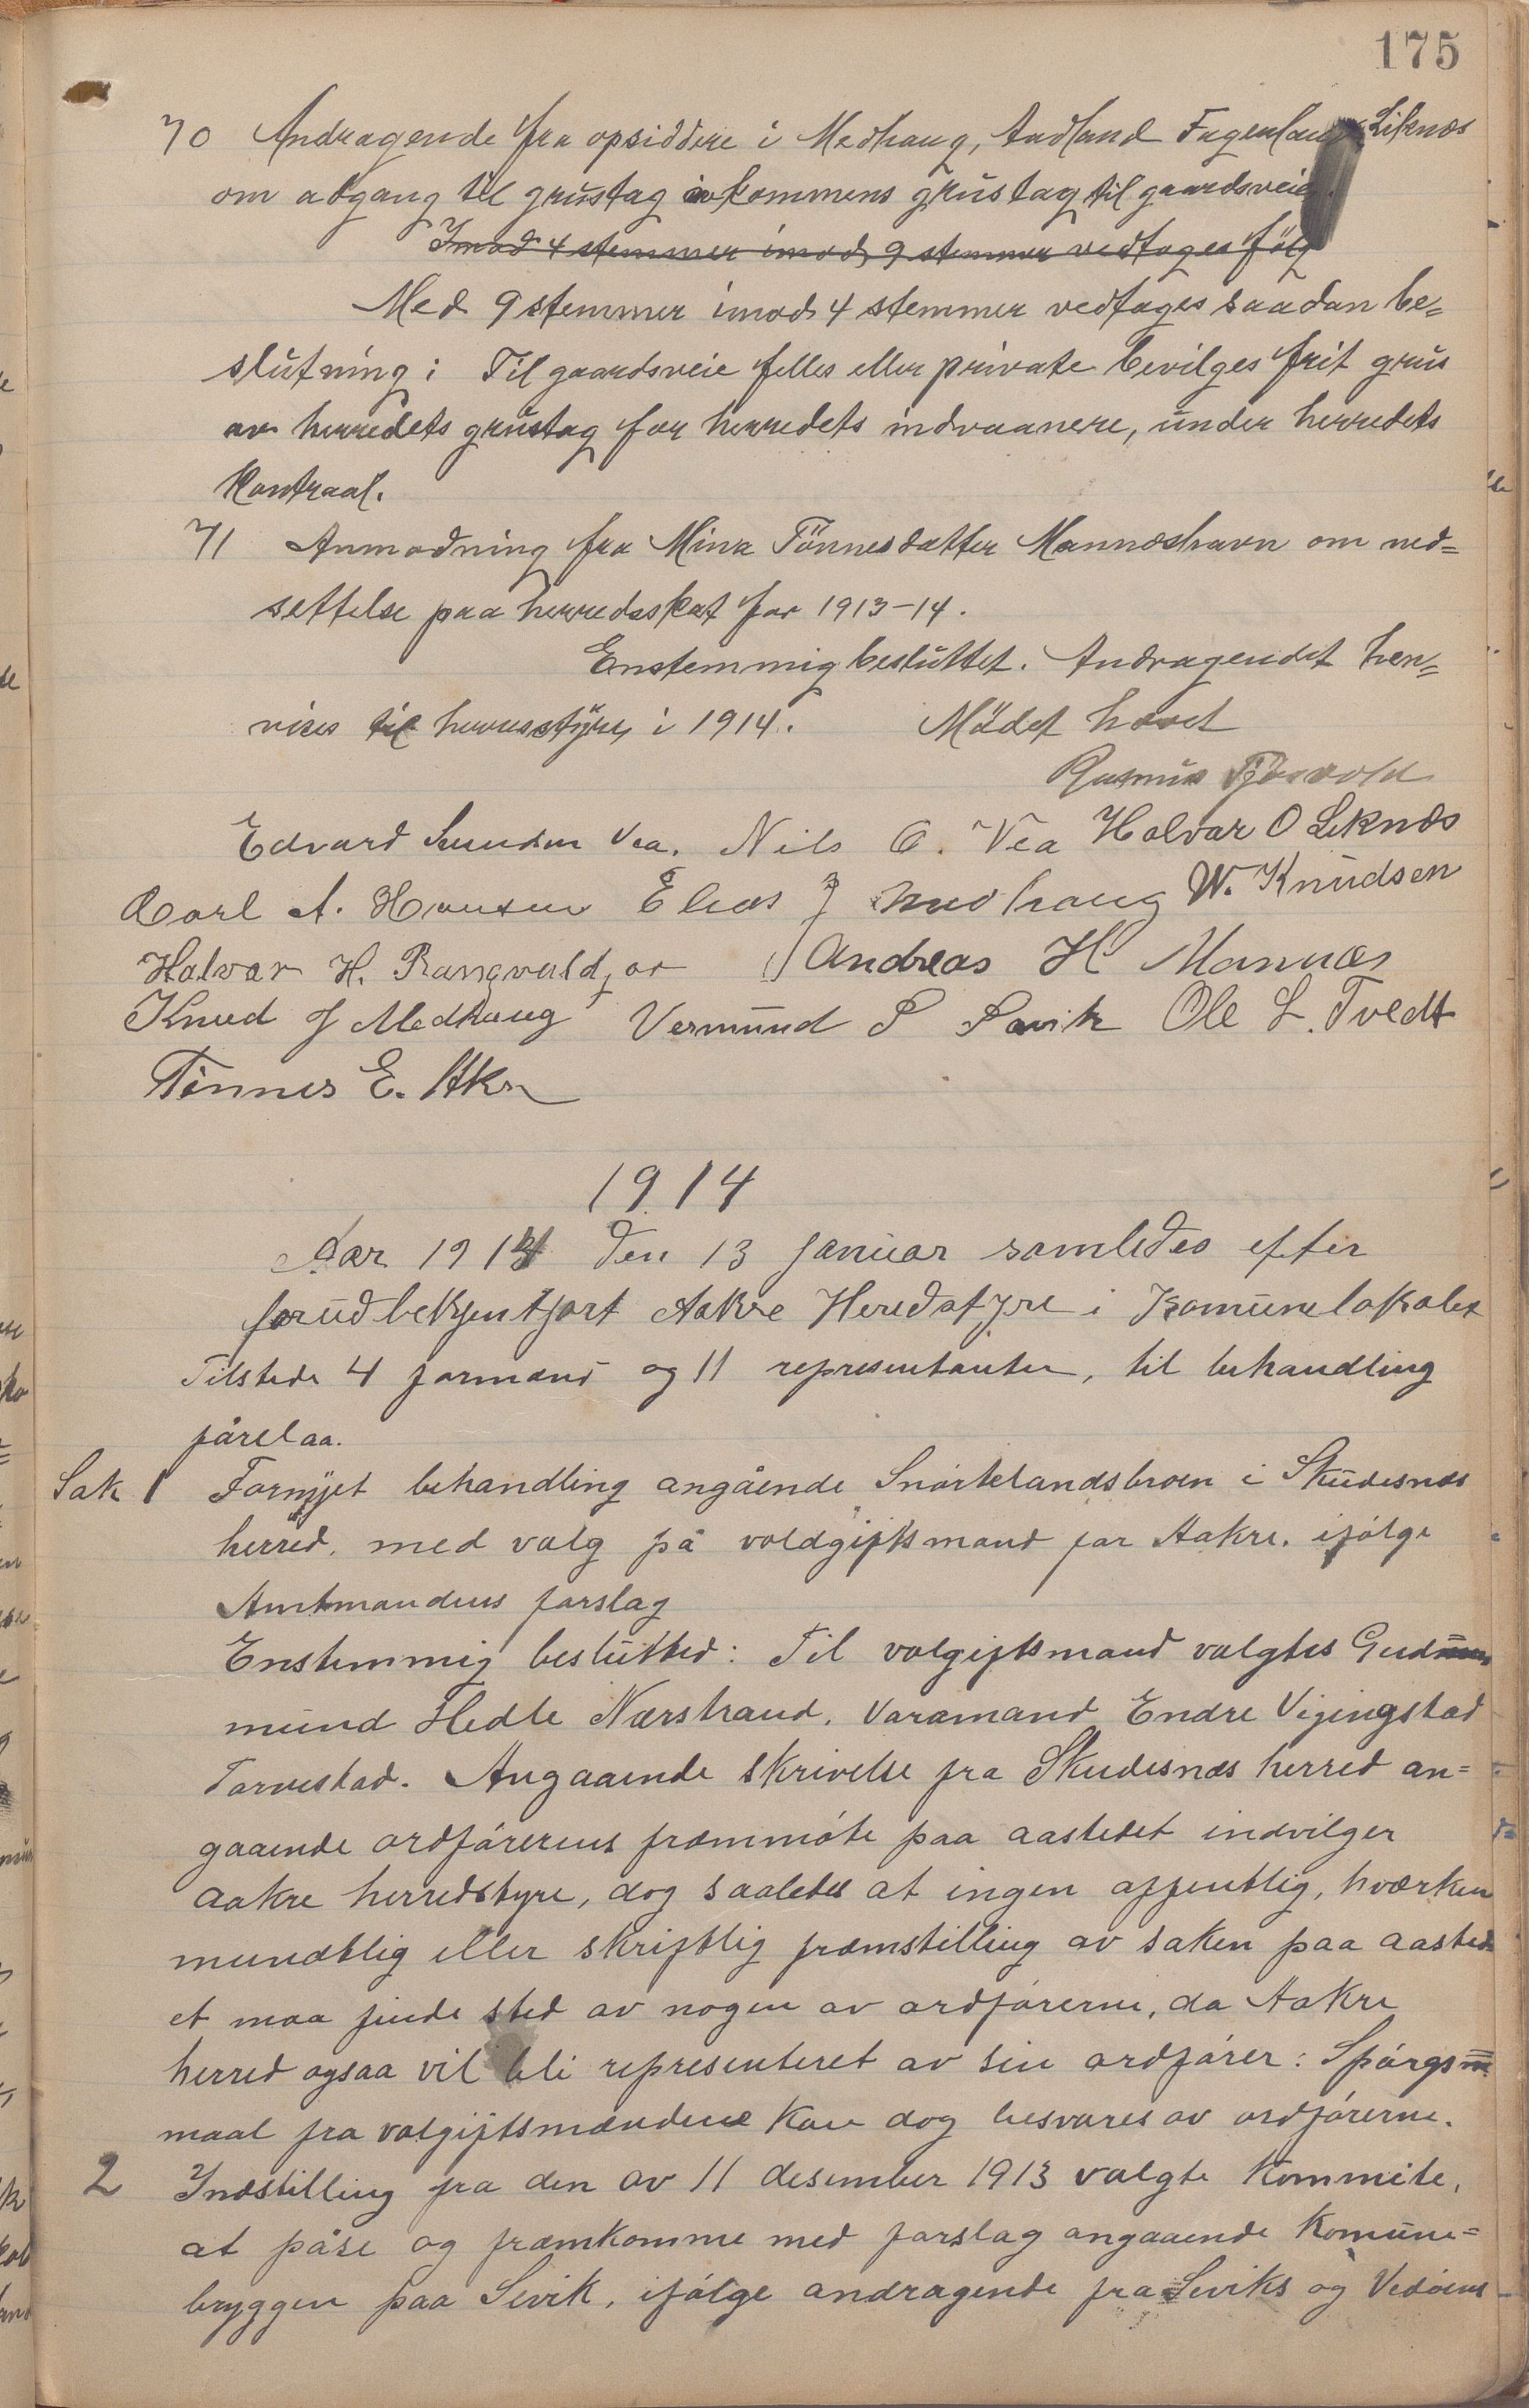 175
70 Andragende fra opsiddere i Medhaug, Aadland Fagerland Liknæs
om adgang til grustag av kommens grustag til gaardsveie.
Imod 4 stemmer imod 9 stemmer vedtages følg
Med 9 stemmer imod 4 stemmer vedtages saadan be=
slutning: Til gaardsveie felles eller private bevilges frit grus
av herredets grustag for herredets indvaanere, under herredets
Kontraal.
71 Anmodning fra Mina Tönnesdatter Mannæshavn om ned=
settelse paa herredsskat for 1913-14.
Enstemmig besluttet. Andragendet hen=
vises til herresstÿre i 1914. Mödet hævet
Rasmus Tjosvold
Edvard Vea. Nils O. Vea Halvar O Liknæs
Carl A. Hansen Elias J Medhaug W. Knudsen
Halvar H. Rangvaldjor Andreas H Mannæs
Knud J Medhaug Vermund S Sævik Ole L. Tvedt
Tönnes E. Akre
1914
Aar 1914 den 13 januar samledes efter
forudbekjentgjort Aakre Heredstyre i Komunelokalet
Tilstede 4 formænd og 11 representanter, til behandling
fårelaa.
Sak 1 Fornyet behandling angående Snørtelandsbroen i Skudesnæs
herred, med valg på voldgiftsmand for Aakre, ifólge
Amtmandens forslag
Enstemmig beslutted: Til volgiftsmand valgtes Gud
mund Hedle Nærstrand. Varamand Endre Vigingstad
Torvestad. Angaaende skrivelse fra Skudesnæs herred an=
gaaende ordfórerens fræmmóte paa aastedet indvilger
Aakre herredstyre, dog saaledes at ingen offentlig, hværken
mundtlig eller skriftlig fræmstilling av saken paa aasted
et maa finde sted av nogen av ordfórerne, da Aakre
herred ogsaa vil bli representeret av sin ordfórer: Spórgsm
maal fra volgiftsmændene kan dog besvares av ordfórerne.
2 Indstilling fra den av 11 desember 1913 valgte Kommite,
at påse og fræmkomme med forslag angaaende Komune=
bryggen paa Sevik, ifólge andragende fra Seviks og Vedóens